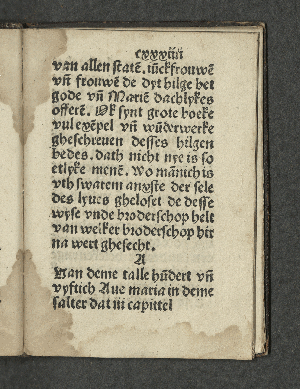 cxxxiiii
van allen statē. iūckfrouwē
vñ frouwē de dyt hilge bet
gode vñ Mariē dachlykes
offerē. Ok synt grote boeke
vul exēpel vñ wūderwerke
ghescreuen desses hilgen
bedes. dath nicht nye is so
etlyke menē. Wo mānich is
vth swarem anxste der sele
des lyues gheloset de desse
wyse vnde broderschop helt
van welker broderschop hir
na wert ghesecht.
A
Van deme talle hūdert vñ
vyftich Aue maria in deme
salter dat iii capittel